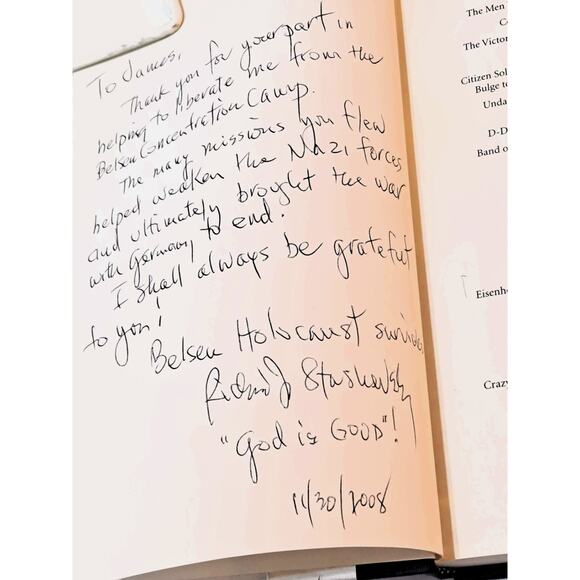 To James,
Thank you for your part in
helping to liberate me from the
Belsen Concentration Camp.
The many missions you flew
helped weaken the Nazi forces
and ultimately brought the war
with Germany to end.
I shall always be grateful
to you!
Belsen Holocaust
"God is GOOD"!
11/30/2008
The Men
Co
The Victor
Citizen Sol
Bulge to
Unda
D-D
Band o
Eisenho
Crazy